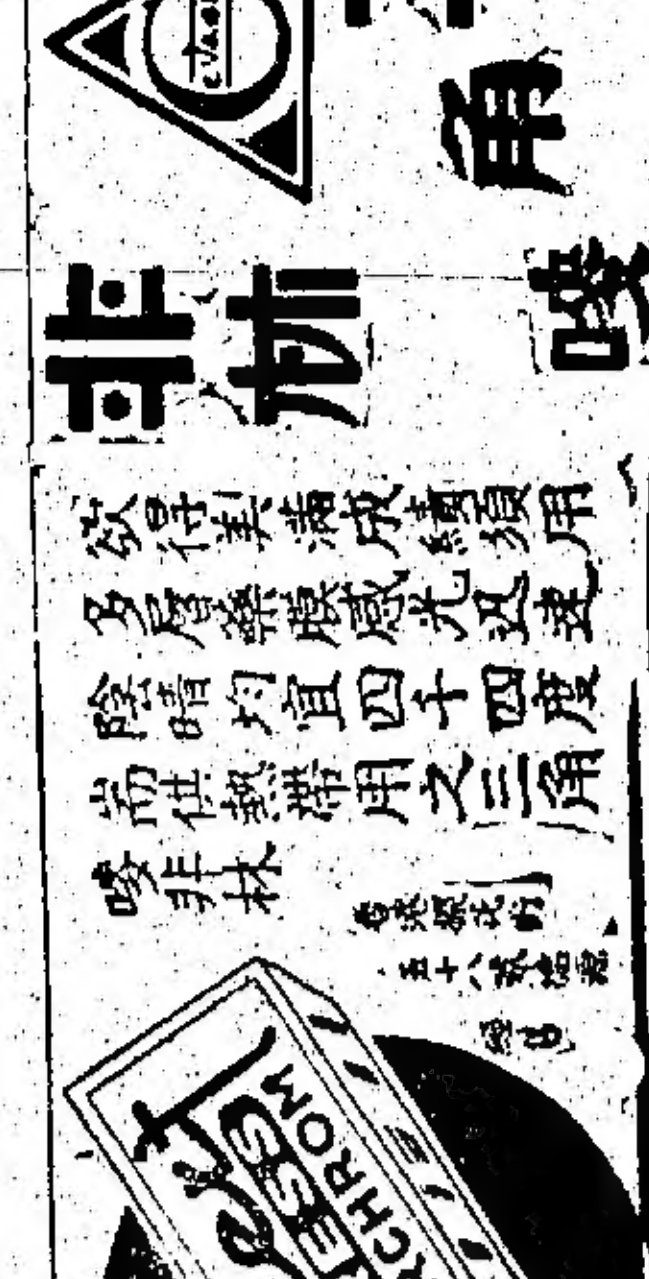 角嘜
非林
欲得美滿成績須用
多層藥膜感光迅速
陰晴均宜四千四度
耑供熱帶用之三角
嘜非林
香港
五十八號
經售
ESS
CHROM